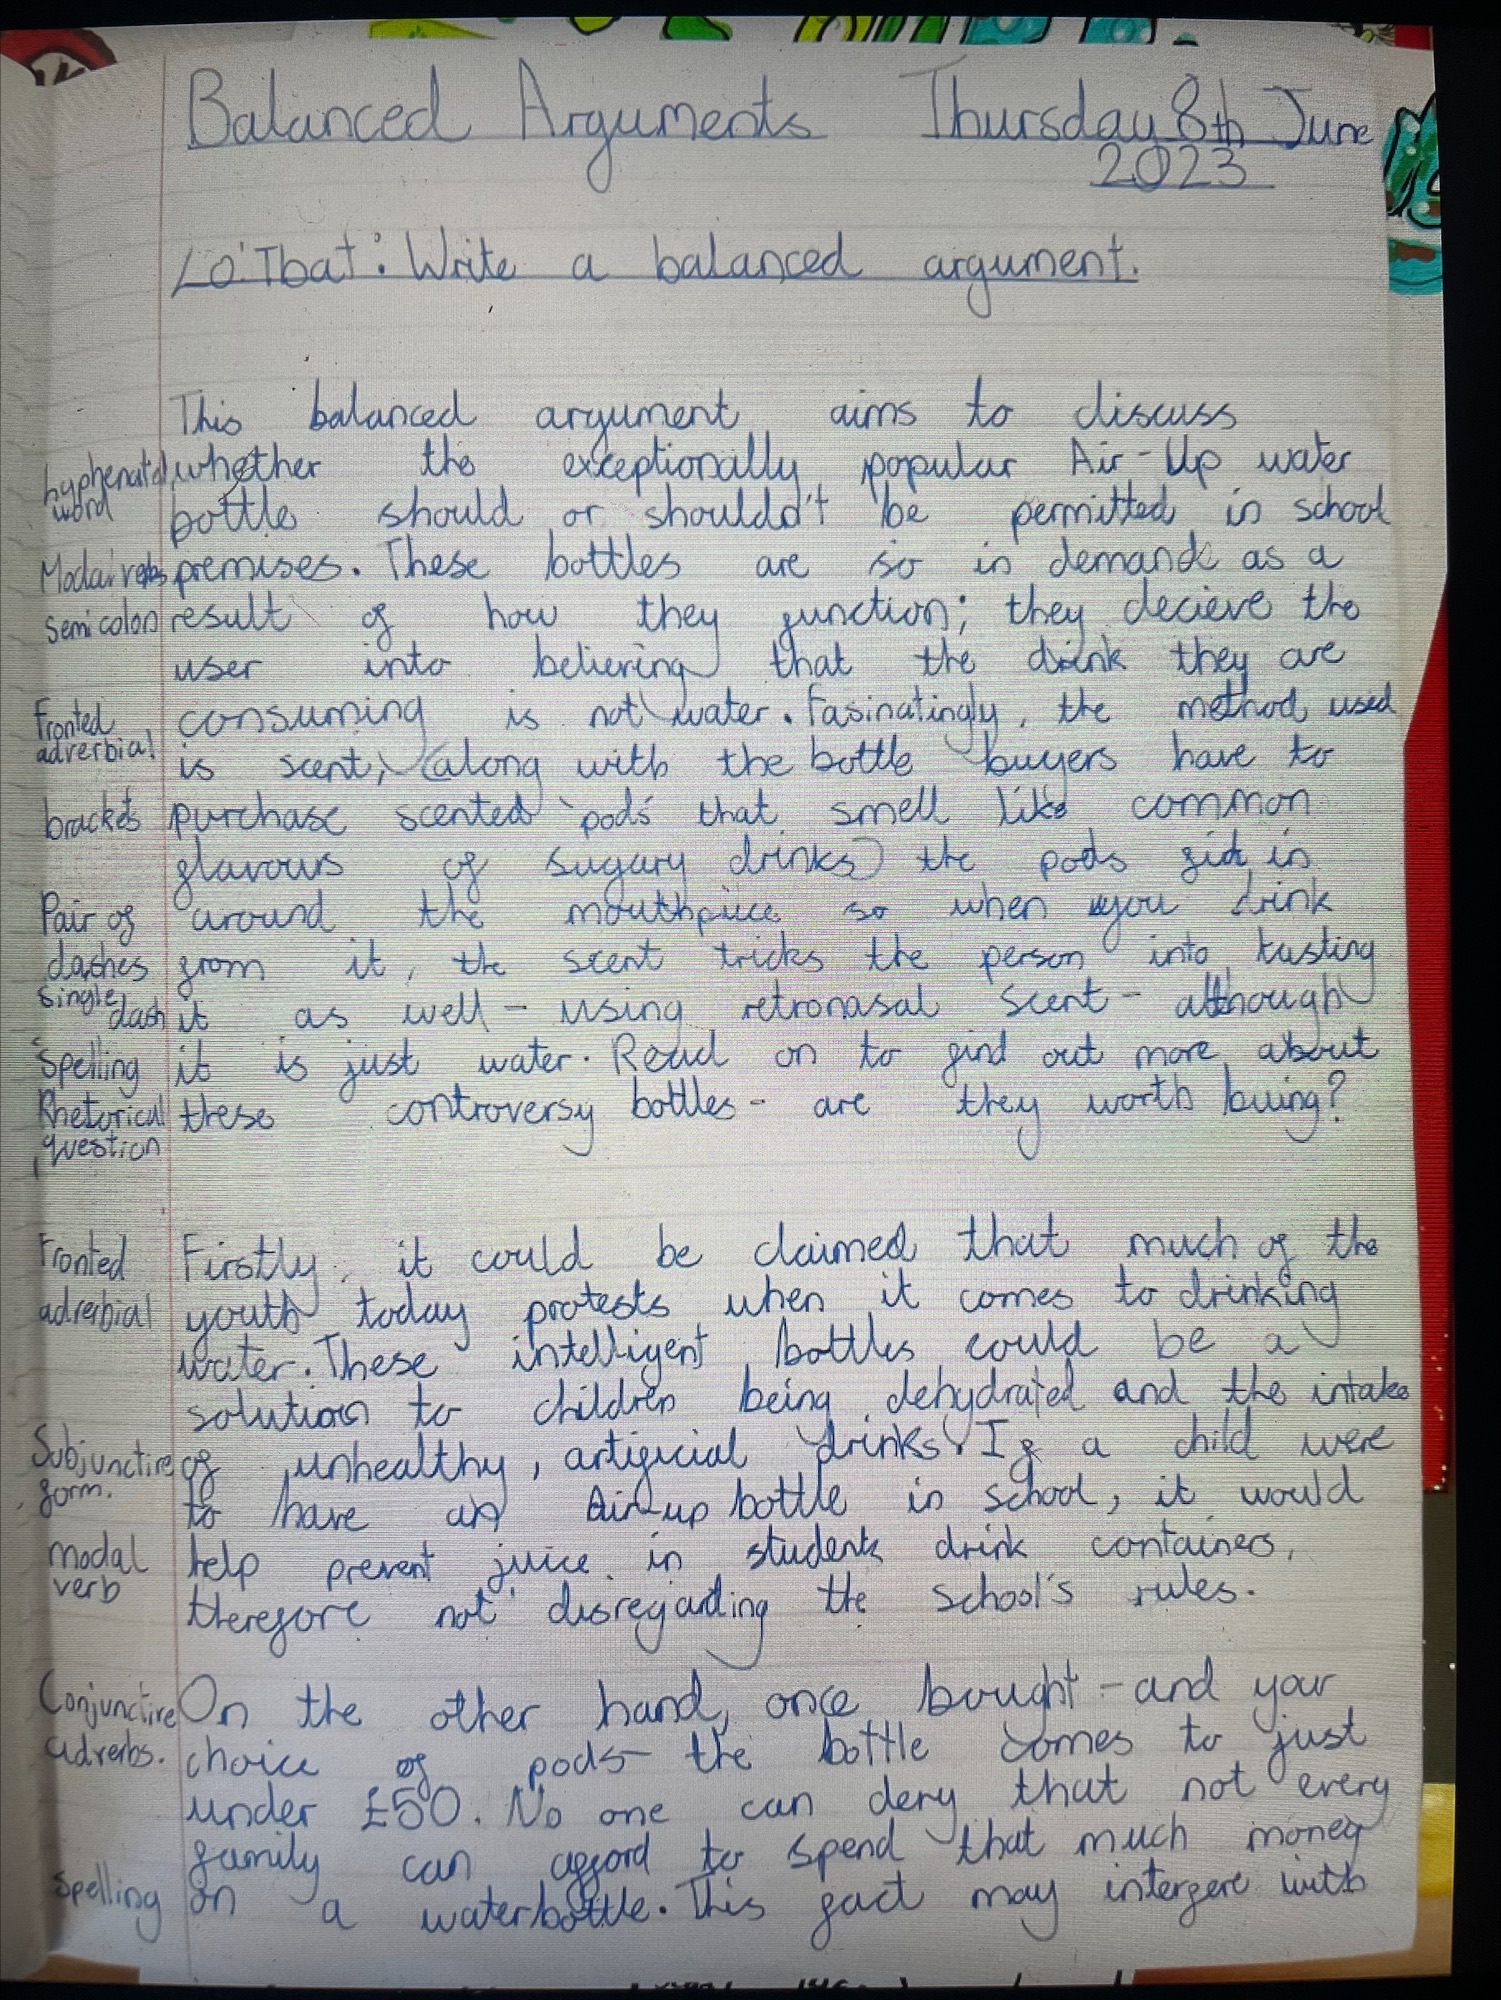 Balanced Arguments Thursday 8th June
2023
Lo: Tbat: Write a balanced argument.
This balanced argument aims to discuss
hyphenated whether the exceptionally popular Air-Up water
word bottle should or shouldn't be permitted in school
Modal verbs premises. These bottles are so in demand as a
semicolon result of how they function; they decieve the
user into believing that the drink they are
Fronted consuming is not water. Fasinatingly, the method used
adverbial is scent, (along with the bottle buyers have to
brackets purchase scented 'pods' that smell like common
flavours of sugary drinks) the pods fit in
Pair of around the mouthpiece so when you drink
dashes from it, the scent tricks the person into tasting
single dash it as well - using retronasal scent - although
Spelling it is just water. Read on to find out more about
Rhetorical these controversy bottles - are they worth buing?
question
Fronted Firstly, it could be claimed that much of the
adverbial youth today protests when it comes to drinking
water. These intelligent bottles could be a
solution to children being dehydrated and the intake
Subjunctive of unhealthy, artificial drinks. If a child were
form. to have an Air-up bottle in school, it would
modal help prevent juice in students drink containers,
verb therefore not disregarding the school's rules.
Conjunctive On the other hand, once bought - and your
adverbs. choice of pods - the bottle comes to just
under £50. No one can deny that not every
family can afford to spend that much money
Spelling on a waterbottle. This fact may interfere with